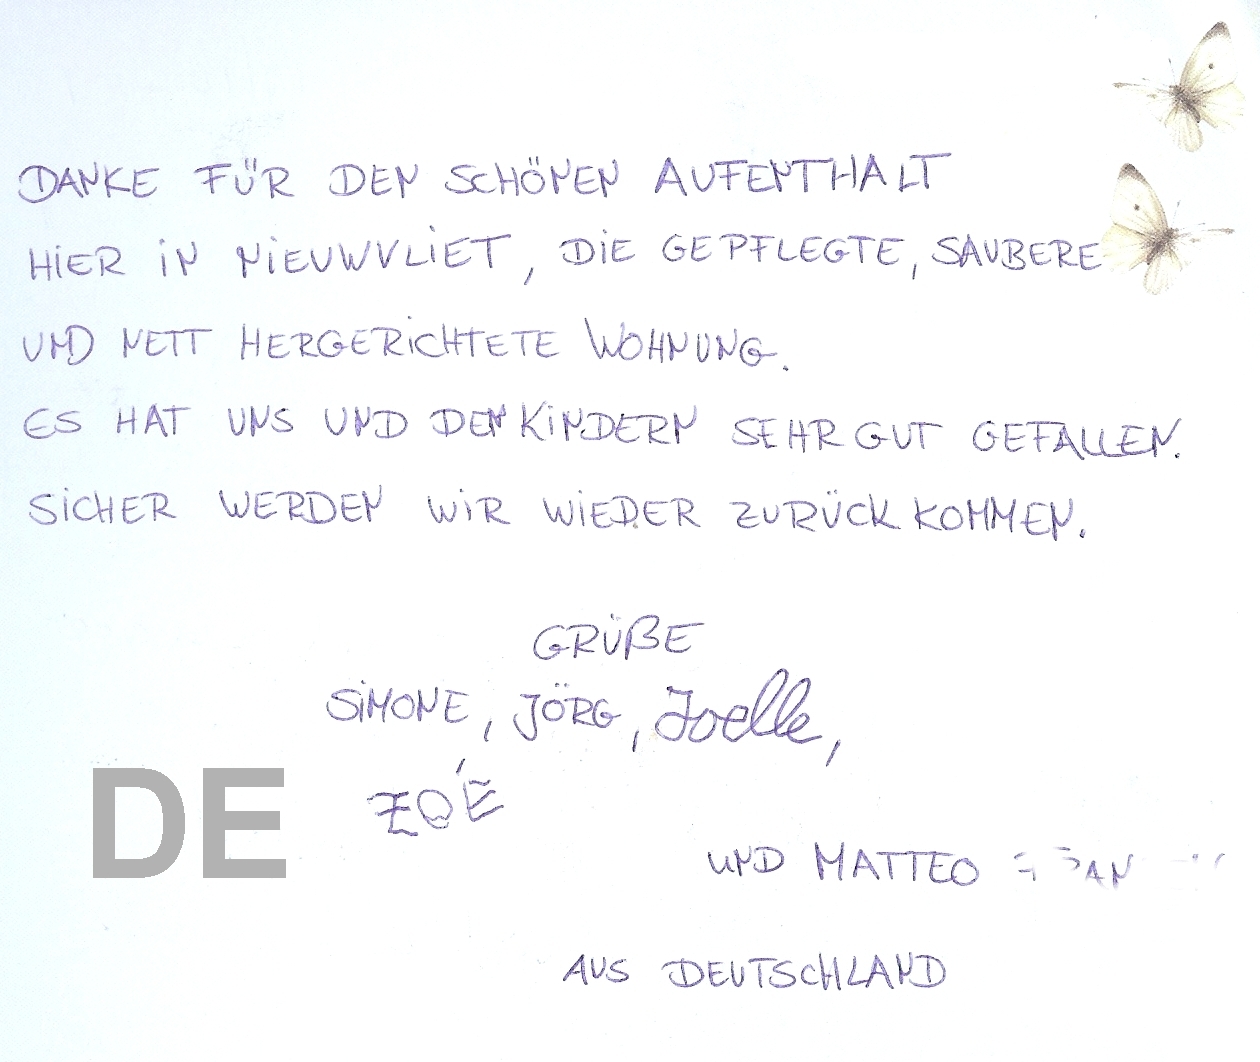 DANKE FÜR DEN SCHÖNEN AUFENTHALT
HIER IN NIEUWVLIET, DIE GEPFLEGTE, SAUBERE
UND NETT HERGERICHTETE WOHNUNG.
ES HAT UNS UND DEN KINDERN SEHR GUT GEFALLEN.
SICHER WERDEN WIR WIEDER ZURÜCK KOMMEN.
GRÜßE
SIMONE, JÖRG, Joelle,
ZOÉ
DE
UND MATTEO
AUS DEUTSCHLAND